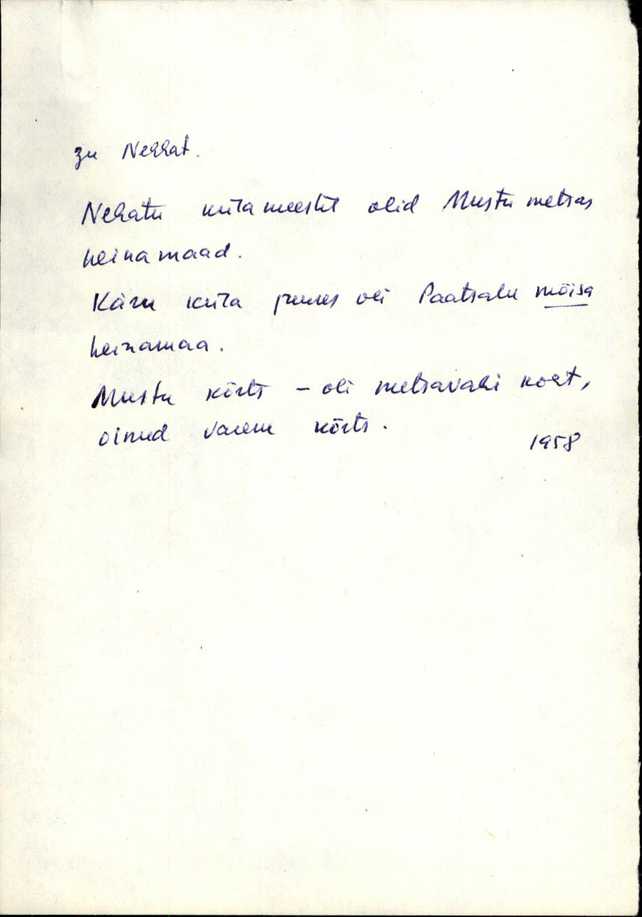 zu Nehhat.
Nehatu küla meestel olid Mustu metsas
heinamaad.
Käru küla juures oli Paatsalu mõisa
heinamaa.
Mustu kõrts – oli metsavahi koht,
olnud varem kõrts.
1958